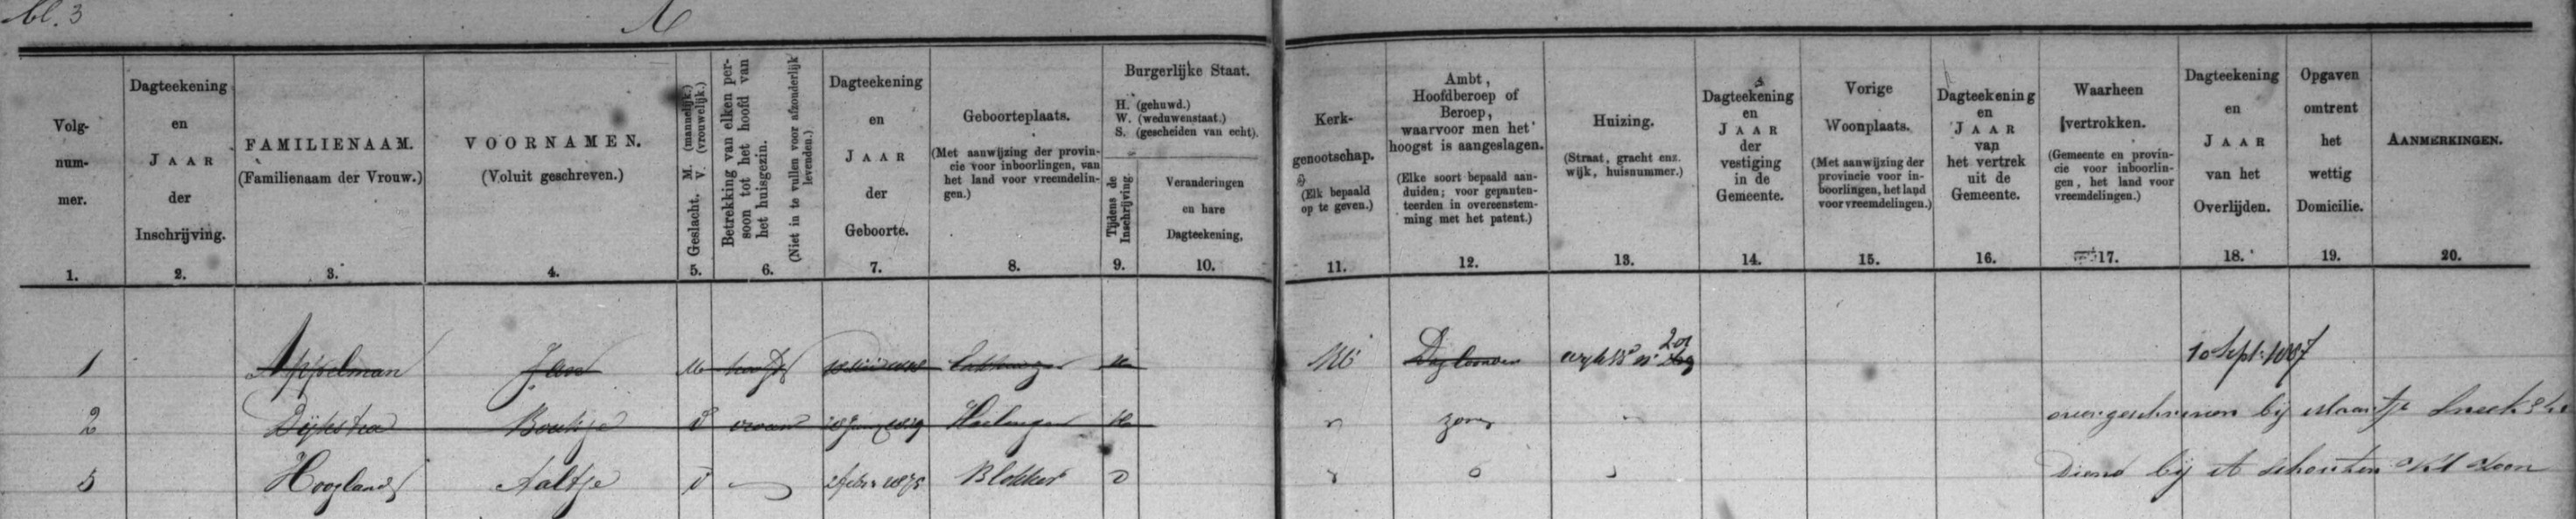 bl. 3
A
Volg-
num-
mer.
1.
Dagteekening
en
JAAR
der
Inschrijving.
2.
FAMILIENAAM.
(Familienaam der Vrouw.)
3.
VOORNAMEN.
(Voluit geschreven.)
4.
Geslacht. M. (mannelijk.)
V. (vrouwelijk.)
5.
Betrekking van elken per-
soon tot het hoofd van
het huisgezin.
(Niet in te vullen voor afzonderlijk
levenden.)
6.
Dagteekening
en
JAAR
der
Geboorte.
7.
Geboorteplaats.
(Met aanwijzing der provin-
cie voor inboorlingen, van
het land voor vreemdelin-
gen.)
8.
Burgerlijke Staat.
H. (gehuwd.)
W. (weduwenstaat.)
S. (gescheiden van echt).
Tijdens de
Inschrijving.
9.
Veranderingen
en hare
Dagteekening,
10.
Kerk-
genootschap.
(Elk bepaald
op te geven.)
11.
Ambt,
Hoofdberoep of
Beroep,
waarvoor men het
hoogst is aangeslagen.
(Elke soort bepaald aan-
duiden; voor gepaten-
teerden in overeenstem-
ming met het patent.)
12.
Huizing.
(Straat, gracht enz.
wijk, huisnummer.)
13.
Dagteekening
en
JAAR
der
vestiging
in de
Gemeente.
14.
Vorige
Woonplaats.
(Met aanwijzing der
provincie voor in-
boorlingen, het land
voor vreemdelingen.)
15.
Dagteekening
en
JAAR
van
het vertrek
uit de
Gemeente.
16.
Waarheen
vertrokken.
(Gemeente en provin-
cie voor inboorlin-
gen, het land voor
vreemdelingen.)
17.
Dagteekening
en
JAAR
van het
Overlijden.
18.
Opgaven
omtrent
het
wettig
Domicilie.
19.
AANMERKINGEN.
20.
1 Appelman Jan M hoofd NH Dagloner wijk B n° 201 10 Sept. 1887
2 Dijkstra Boukje V vrouw Harlingen overgeschreven bij
3 Hoogland Aaltje V 1875 Blokker Diend bij A Schouten